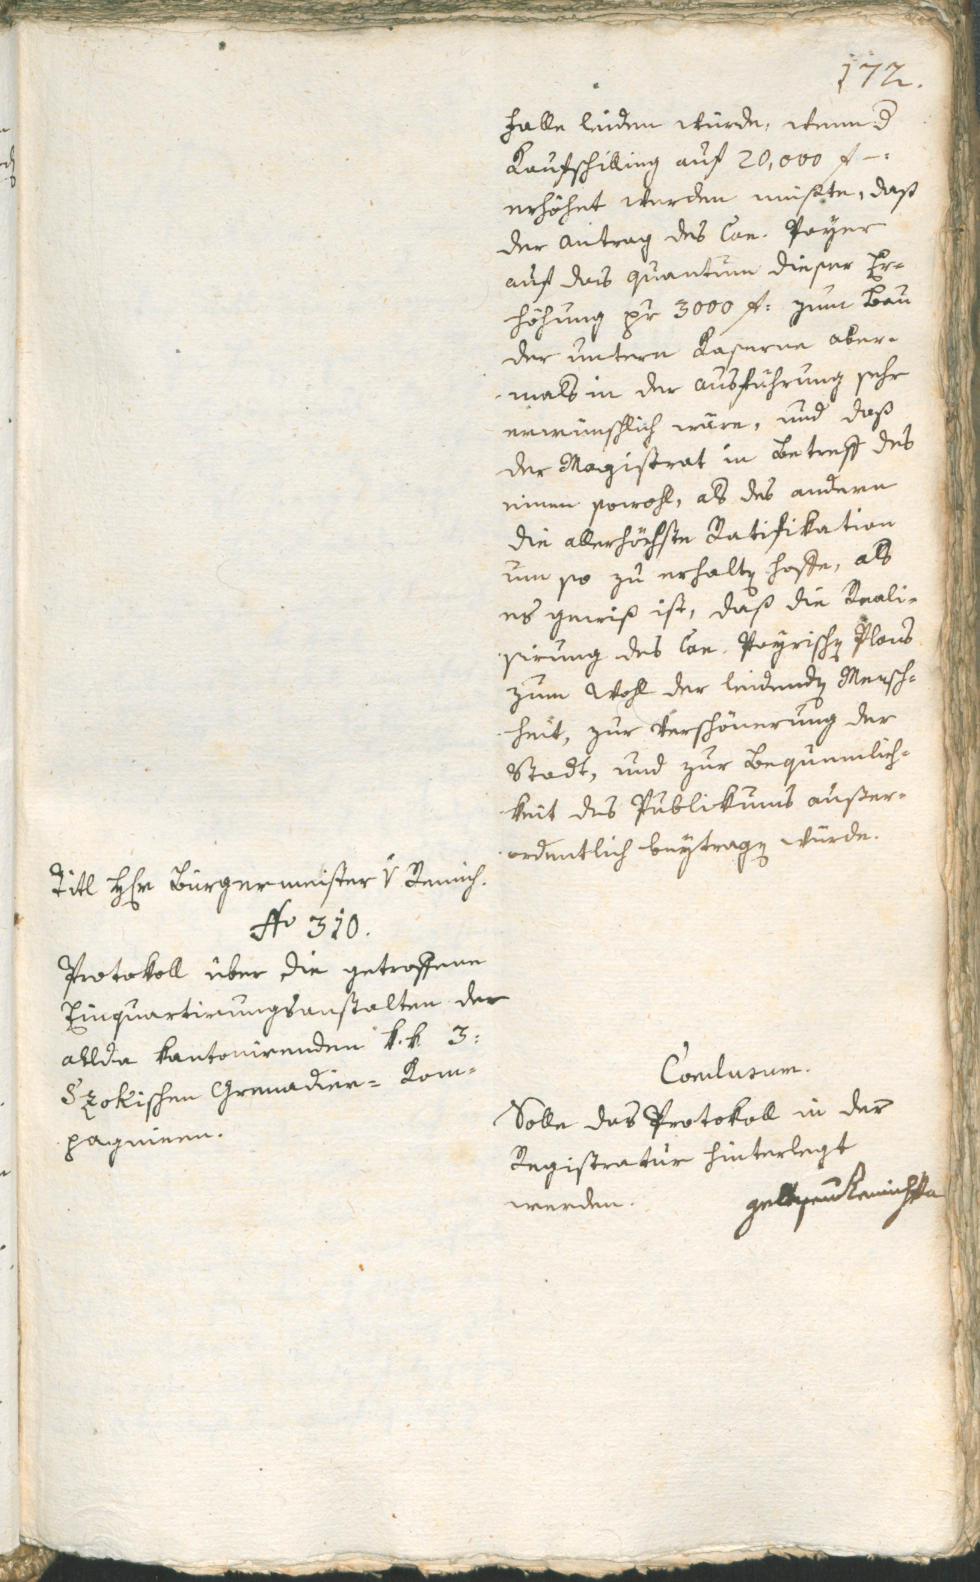 172.
Falle leiden würde, wenn d
Kaufschilling auf 20,000 f –:
erhöhet werden müßte, daß
der Antrag des Con. Payer
auf das quantum dieser Er=
höhung pr 3000 f: zum Bau
der untern Kaserne aber=
mals in der Ausführung sehr
erwünschlich wäre, und daß
der Magistrat in Betreff des
einen sowohl, als des andern
die allerhöchste Ratifikation
um so zu erhalten hoffe, als
es gewiß ist, daß die Reali=
sirung des Con. Payrischen Plans
zum Wohl der leidenden Mensch=
heit, zur Verschönerung der
Stadt, und zur Bequemlich=
keit des Publikums außer=
ordentlich beytragen würde.
Titl Hr Bürgermeister v Remich.
No 310.
Protokoll über die getroffene
Einquartirungsanstalten der
allda kantonirenden k.k. 3:
Grenadier= Kom=
pagnieen.
Conclusum.
Solle das Protokoll in der
Registratur hinterlegt
werden.